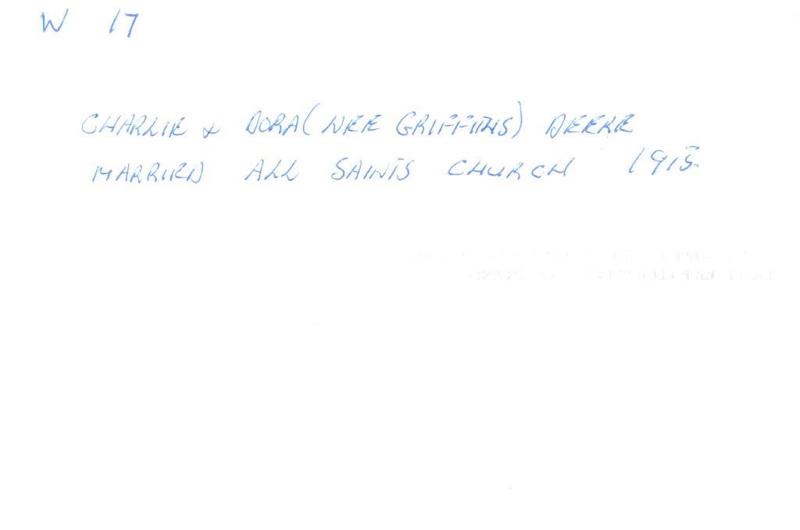 W 17
CHARLIE & DORA (NEE GRIFFITHS) DEEKE
MARRIED ALL SAINTS CHURCH 1915